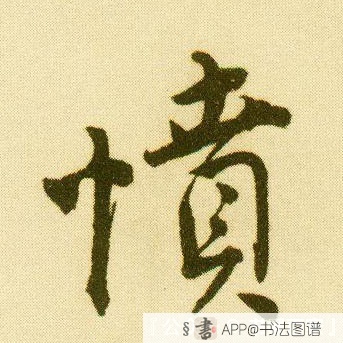 愤
書 APP@书法图谱